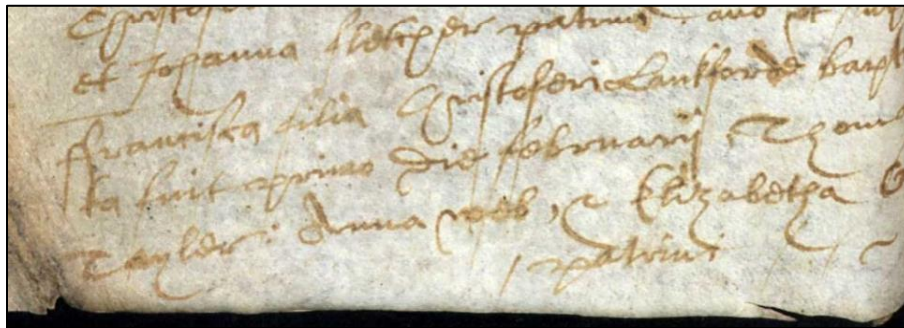 Christofer
et Johanna ffletcher patrini
ffrancisca filia Christoferi Lankforde bapt
ta fuit primo die februarij Thom
Tayler: Anna web, & Elizabetha
patrini